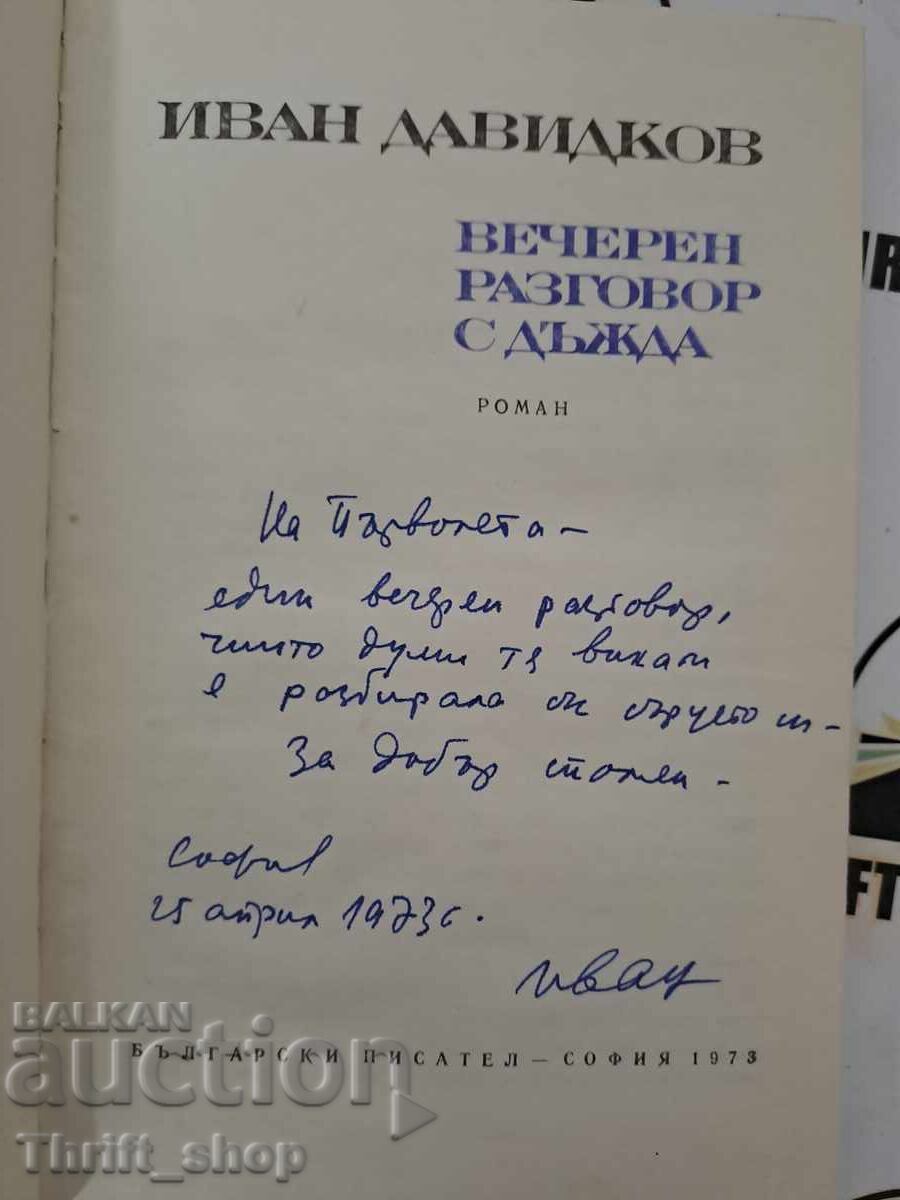 ИВАН ДАВИДКОВ
ВЕЧЕРЕН
РАЗГОВОР
С ДЪЖДА
РОМАН
На Първолета —
един вечерен разговор,
чиито думи тя винаги
е разбирала със сърцето си —
За добър спомен —
София
25 април 1973 г.
Иван
БЪЛГАРСКИ ПИСАТЕЛ — СОФИЯ 1973
BALKAN
auction
Thrift_shop
FT